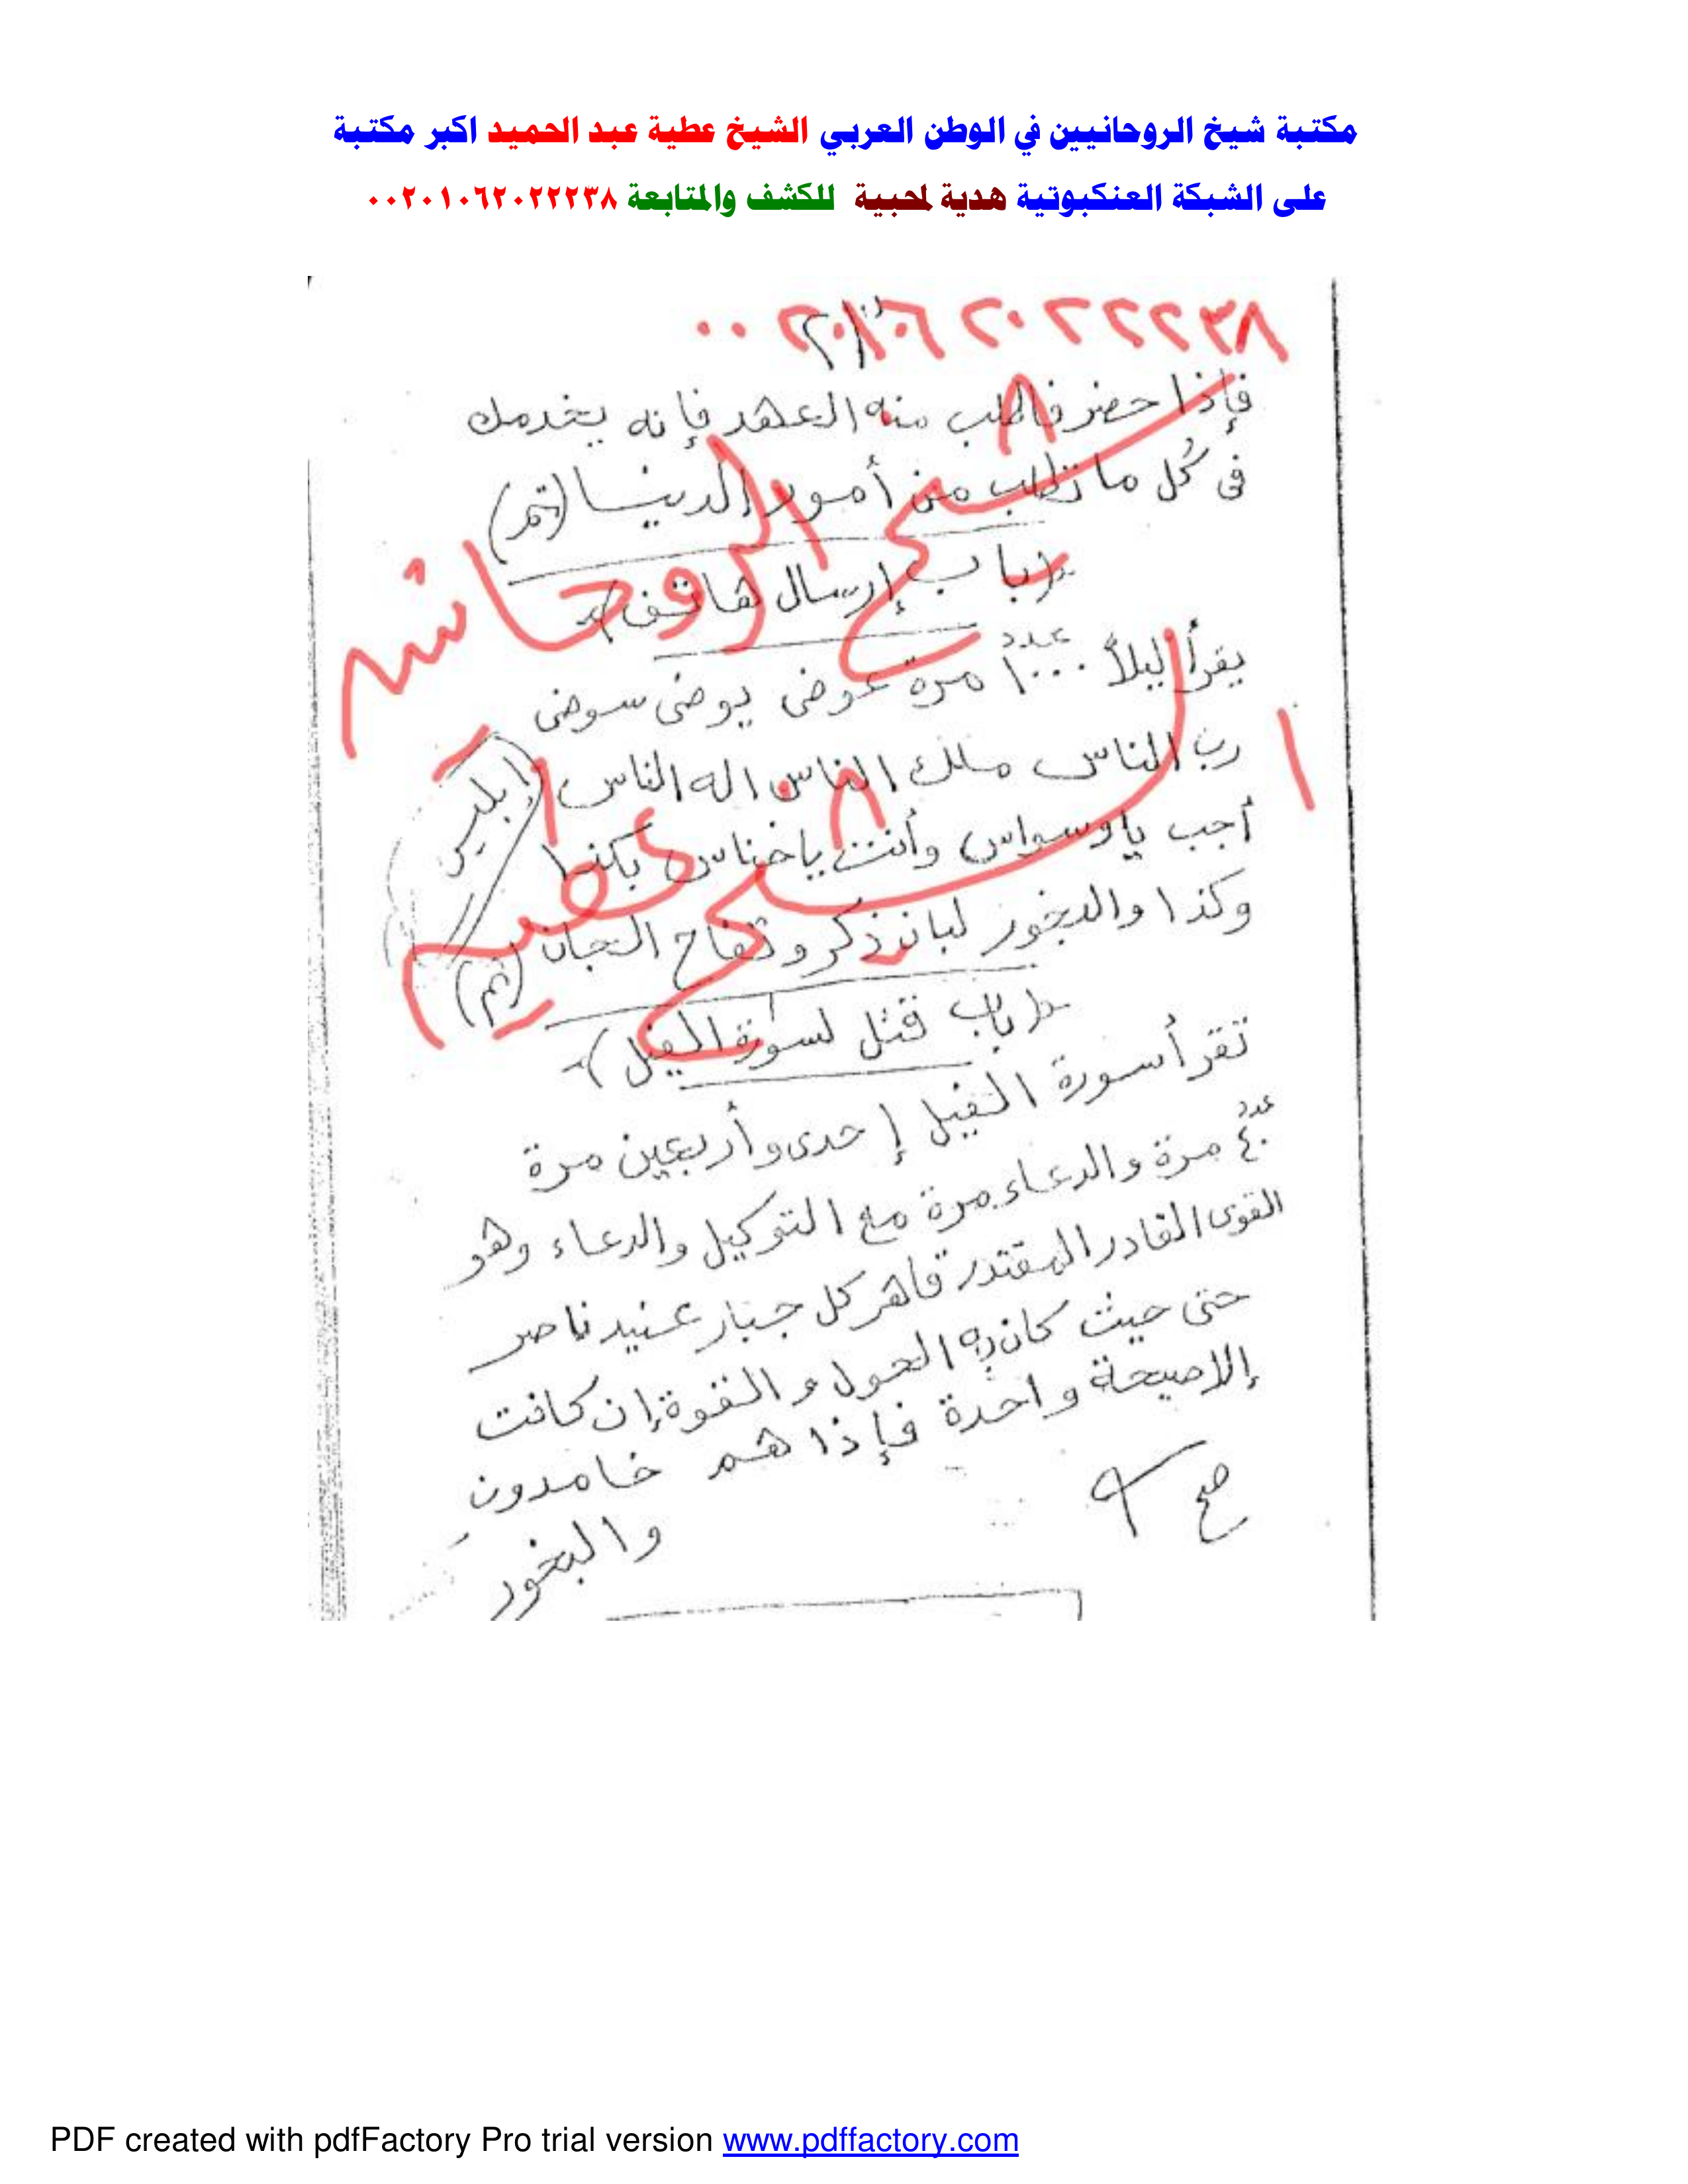 مكتبة شيخ الروحانيين في الوطن العربي الشيخ عطية عبد الحميد اكبر مكتبة
على الشبكة العنكبوتية هدية لمحبية للكشف والمتابعة ٠٠٢٠١٠٦٢٠٢٢٢٣٨
٠٠٢٠١٠٦٢٠٢٢٢٣٨
فإذا حضر فاطلب منه العهد فإنه يخدمك
فى كُل ما تطلب من أمور الدنيا (تم)
(باب إرسال هاتف)
يقرأ ليلاً عدد ١٠٠٠ مرة عوض يوضى سوضى
رب الناس ملك الناس اله الناس
أجب يا وسواس وأنت يا خناس بكذا
وكذا والبخور لبان ذكر وتفاح الجان (تم)
(باب قتل لسورة الفيل)
تقرأ سورة الفيل إحدى وأربعين مرة
عدد ٤٠ مرة والدعاء مرة مع التوكيل والدعاء وهو
القوى القادر المقتدر قاهر كل جبار عنيد ناصر
حتى حيث كان به الحول و القوة إن كانت
إلا صيحة واحدة فإذا هم خامدون
صح
والبخور
شيخ الروحانى
الشيخ عطيه
PDF created with pdfFactory Pro trial version www.pdffactory.com